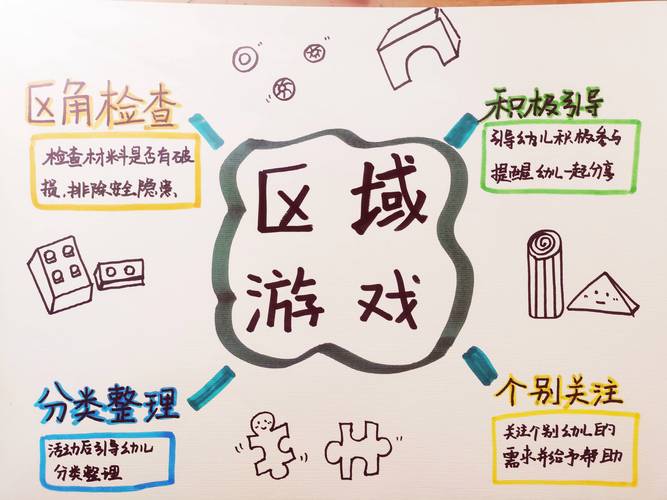 区角检查
检查材料是否有破
损、排除安全隐患、
积极引导
引导幼儿积极参与
提醒幼儿一起分享
区域
游戏
分类整理
活动后引导幼儿
分类整理
个别关注
关注个别幼儿的
需求并给予帮助